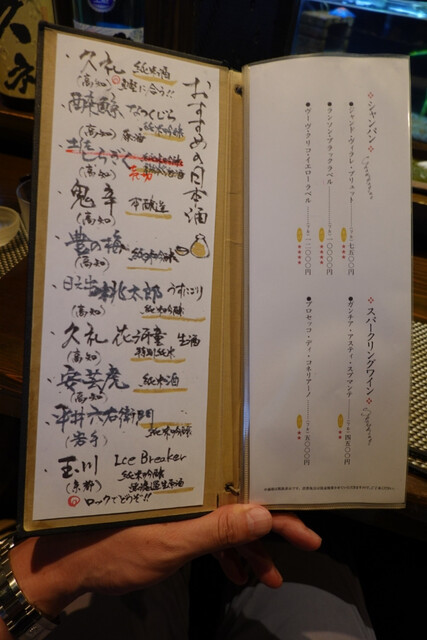 おすすめの日本酒
・久礼 純米酒
(高知) 鰹に合う!!
・酔鯨 なつくじら
(高知) 純米吟醸
・土佐しらぎく
(高知)
・鬼辛
(高知)
・豊の梅 純米吟醸
(高知)
・桃太郎 うすにごり
(高知) 純米吟醸
・久礼 花 生酒
(高知) 特別純米
・安芸虎 純米酒
(高知)
・平井六右衛門
(岩手) 純米吟醸
・玉川 Ice Breaker
(京都) 純米吟醸
無濾過生原酒
ロックでどうぞ!!
シャンパン
●シャンド・ヴィラレ・ブリュット 七五〇〇円
●ランソン・ブラックラベル 一〇〇〇〇円
●ヴーヴ・クリコ・イエローラベル 一二〇〇〇円
スパークリングワイン
●ガンチア・アスティ・スプマンテ 四五〇〇円
●プロセッコ・ディ・コネリアーノ 五〇〇〇円